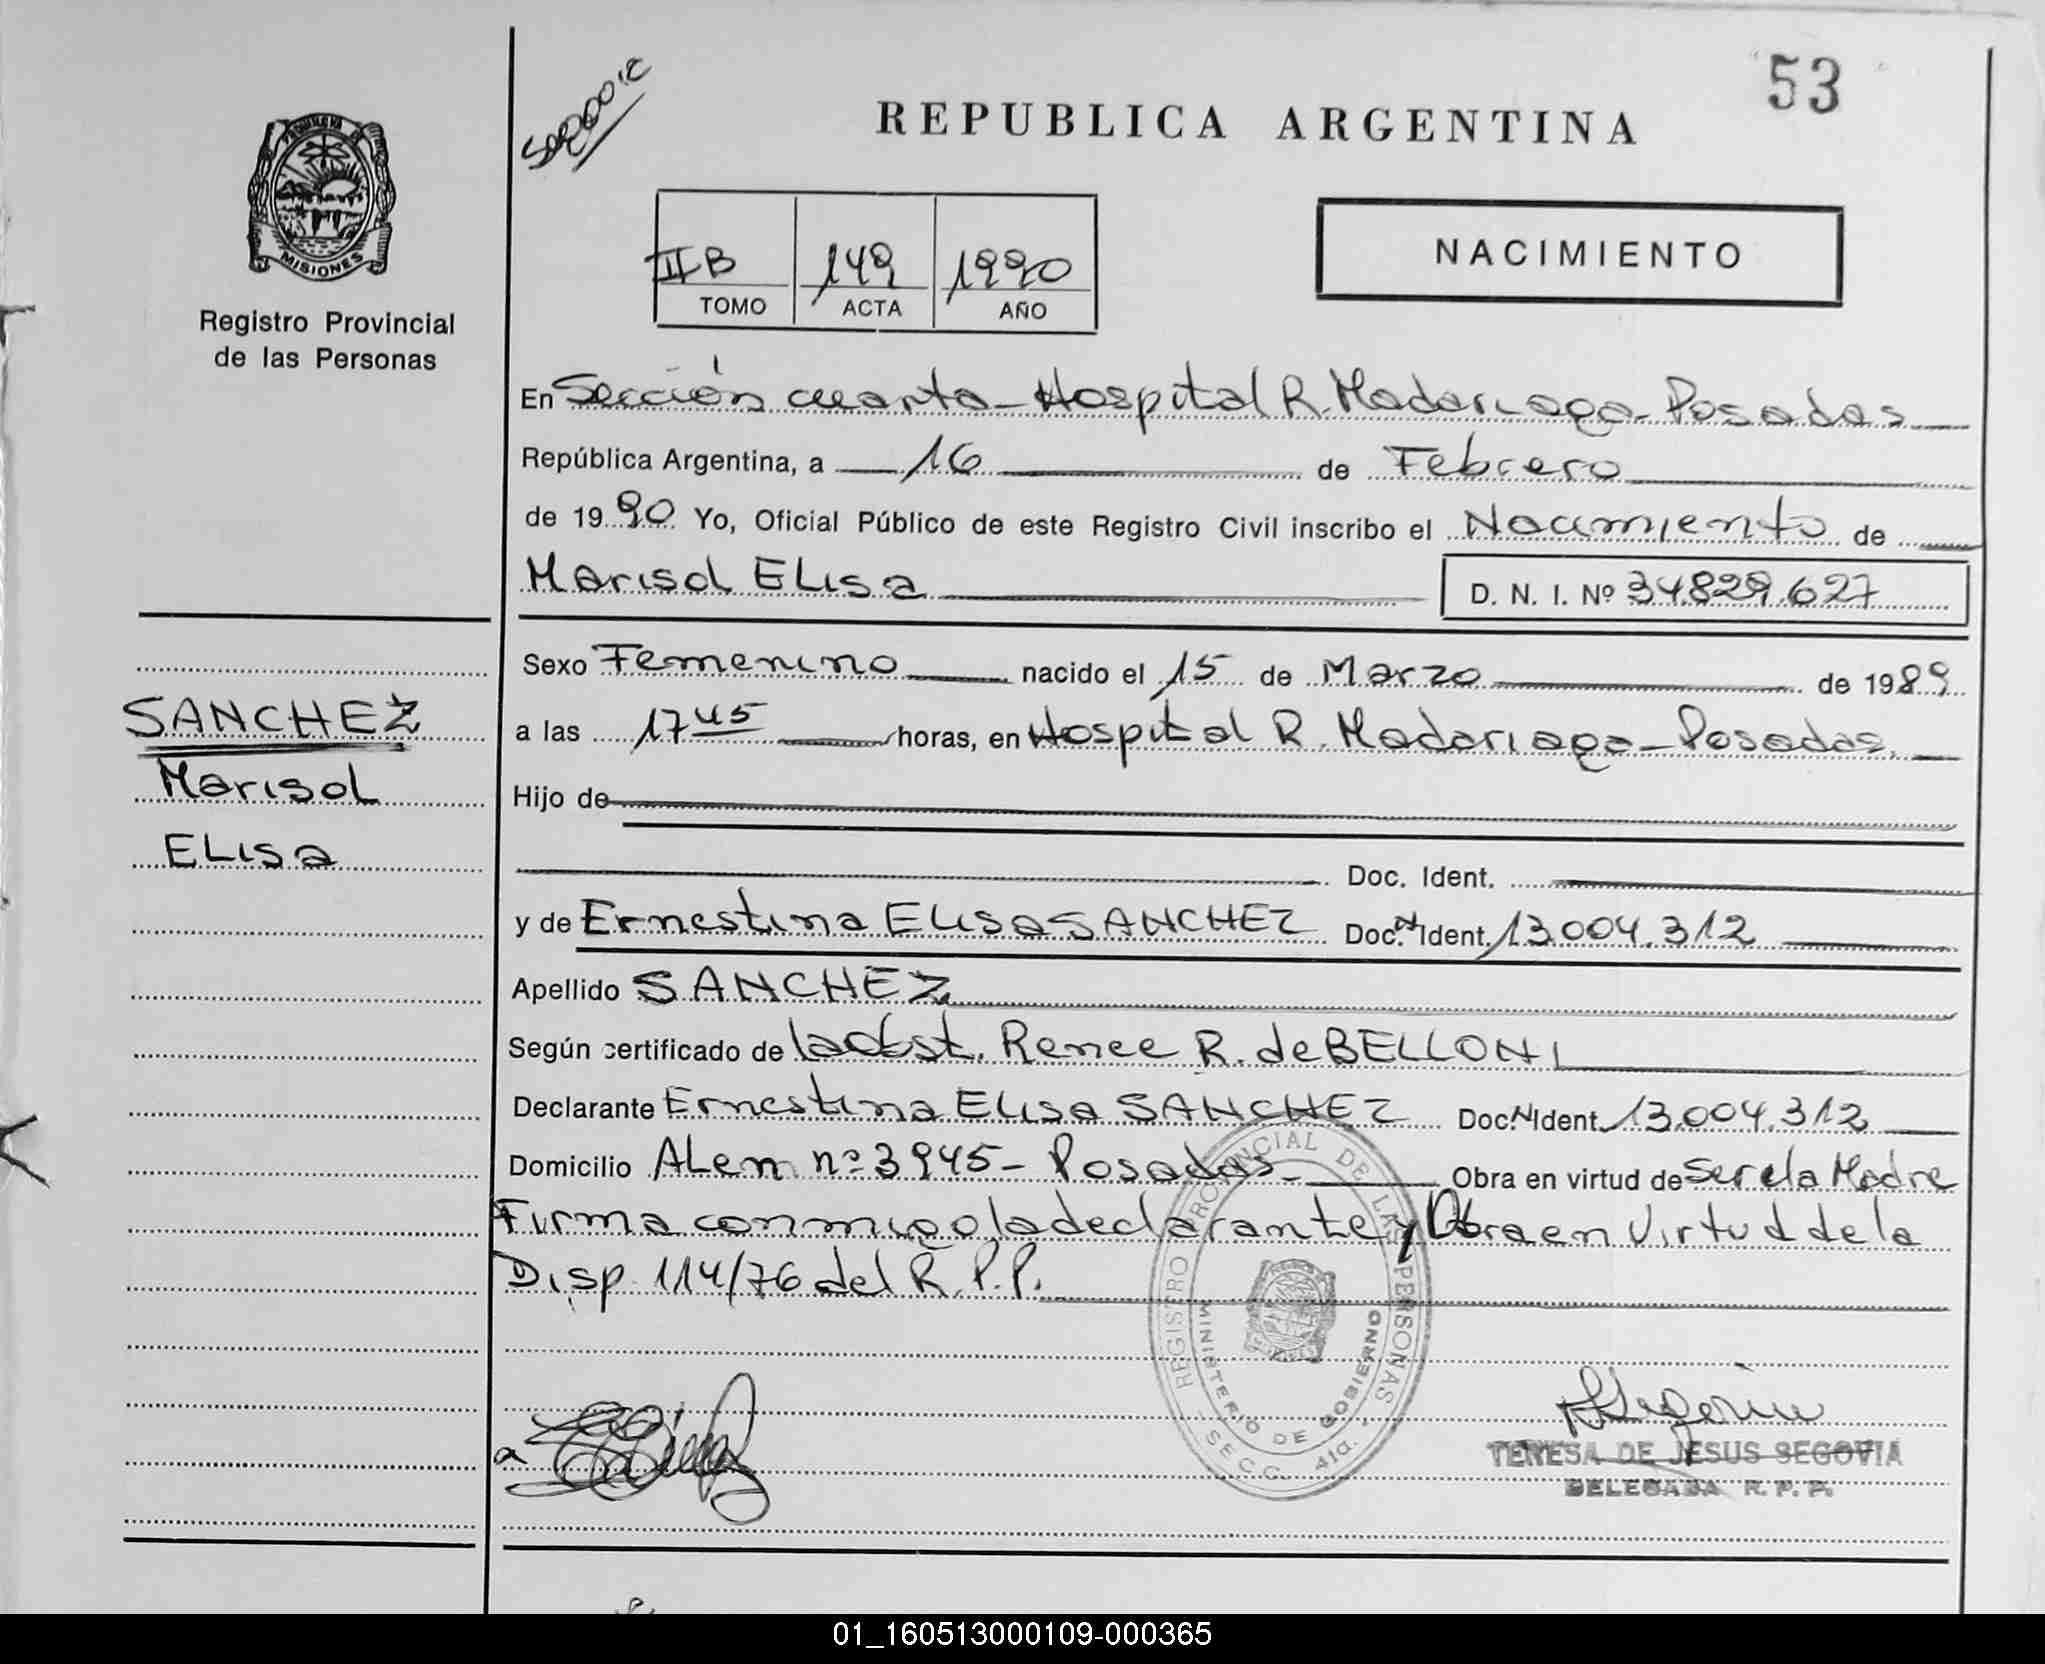 53
REPUBLICA ARGENTINA
PROVINCIA DE
MISIONES
Registro Provincial
de las Personas
NACIMIENTO
IIB 149 1990
TOMO ACTA AÑO
En Sección cuarta - Hospital R. Madariaga - Posadas
República Argentina, a 16 de Febrero
de 1990 Yo, Oficial Público de este Registro Civil inscribo el Nacimiento de
Marisol ELisa D. N. I. Nº 34.829.627
Sexo Femenino nacido el 15 de Marzo de 1989
SANCHEZ
Marisol
ELisa
a las 17 45 horas, en Hospital R. Madariaga - Posadas.
Hijo de
Doc. Ident.
y de Ernestina ELisa SANCHEZ Doc. N Ident. 13.004.312
Apellido SANCHEZ
Según certificado de la Obst. Renee R. de BELLONI
Declarante Ernestina ELisa SANCHEZ Doc. N Ident. 13.004.312
Domicilio ALem nº 3945 - Posadas - Obra en virtud de ser ela Madre
Firma conmigo la declarante y Obra en Virtud de la
Disp. 114/76 del R. P. P.
REGISTRO PROVINCIAL DE LAS PERSONAS
MINISTERIO DE GOBIERNO
- SECC. 4ta. -
TERESA DE JESUS SEGOVIA
DELEGADA R. P. P.
01_160513000109-000365